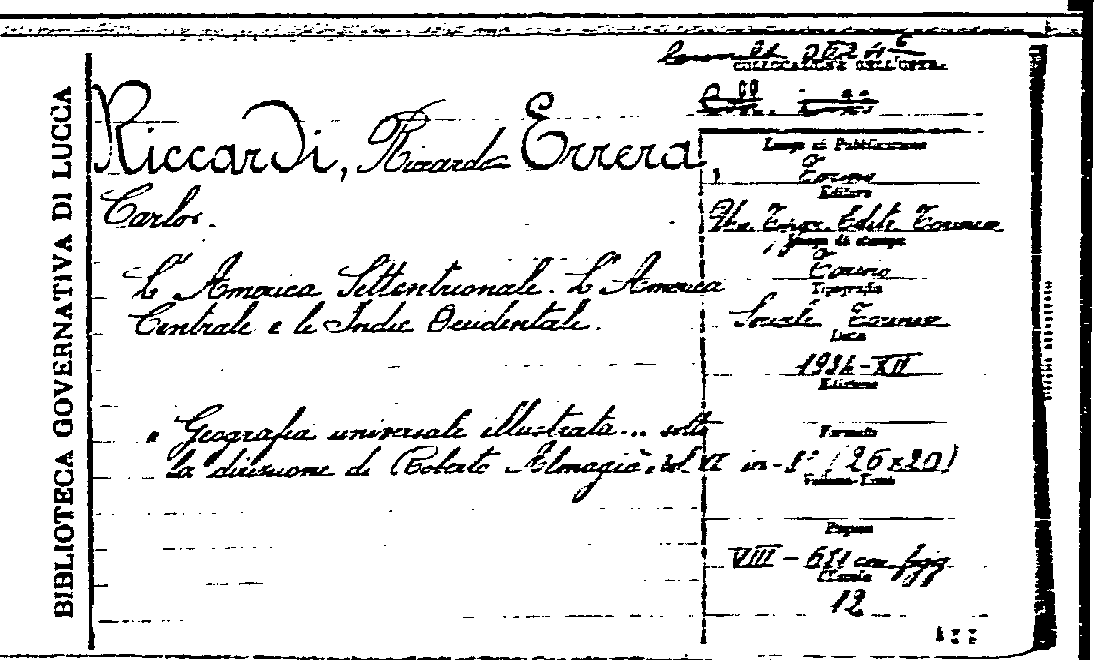 BIBLIOTECA GOVERNATIVA DI LUCCA
COLLOCAZIONE DELL'OPERA
Riccardi, Riccardo Errera,
Carlo.
L'America Settentrionale. L'America
Centrale e le Indie Occidentale.
"Geografia universale illustrata... sotto
la direzione di Roberto Almagià". vol VI
Luogo di Pubblicazione
Torino
Editore
Un. Tipogr. Edit. Torinese
Luogo di stampa
Torino
Tipografia
Sociale Torinese
Data
Edizione
Formato
in-8° (26x20)
Volume-Tomo
Pagine
VIII - con figg
Classe
12